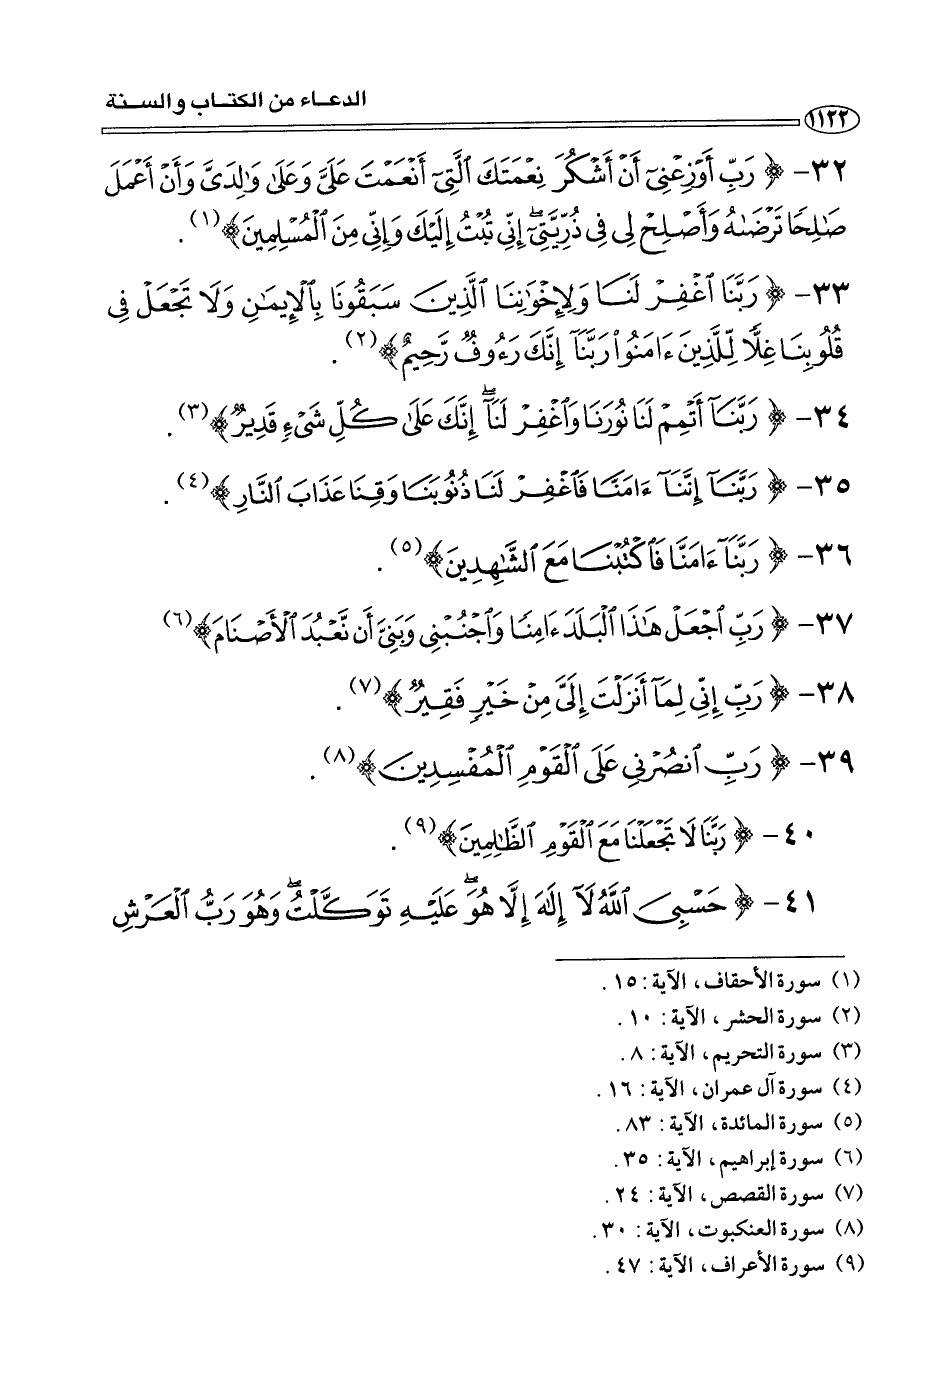 الدعاء من الكتاب والسنة
١١٢٢
٣٢- ﴿رَبِّ أَوْزِعْنِىٓ أَنْ أَشْكُرَ نِعْمَتَكَ ٱلَّتِىٓ أَنْعَمْتَ عَلَىَّ وَعَلَىٰ وَٰلِدَىَّ وَأَنْ أَعْمَلَ
صَٰلِحًا تَرْضَىٰهُ وَأَصْلِحْ لِى فِى ذُرِّيَّتِىٓ ۖ إِنِّى تُبْتُ إِلَيْكَ وَإِنِّى مِنَ ٱلْمُسْلِمِينَ﴾(١).
٣٣- ﴿رَبَّنَا ٱغْفِرْ لَنَا وَلِإِخْوَٰنِنَا ٱلَّذِينَ سَبَقُونَا بِٱلْإِيمَٰنِ وَلَا تَجْعَلْ فِى
قُلُوبِنَا غِلًّا لِّلَّذِينَ ءَامَنُوا۟ رَبَّنَآ إِنَّكَ رَءُوفٌ رَّحِيمٌ﴾(٢).
٣٤- ﴿رَبَّنَآ أَتْمِمْ لَنَا نُورَنَا وَٱغْفِرْ لَنَآ ۖ إِنَّكَ عَلَىٰ كُلِّ شَىْءٍ قَدِيرٌ﴾(٣).
٣٥- ﴿رَبَّنَآ إِنَّنَآ ءَامَنَّا فَٱغْفِرْ لَنَا ذُنُوبَنَا وَقِنَا عَذَابَ ٱلنَّارِ﴾(٤).
٣٦- ﴿رَبَّنَآ ءَامَنَّا فَٱكْتُبْنَا مَعَ ٱلشَّٰهِدِينَ﴾(٥).
٣٧- ﴿رَبِّ ٱجْعَلْ هَٰذَا ٱلْبَلَدَ ءَامِنًا وَٱجْنُبْنِى وَبَنِىَّ أَن نَّعْبُدَ ٱلْأَصْنَامَ﴾(٦)
٣٨- ﴿رَبِّ إِنِّى لِمَآ أَنزَلْتَ إِلَىَّ مِنْ خَيْرٍ فَقِيرٌ﴾(٧).
٣٩- ﴿رَبِّ ٱنصُرْنِى عَلَى ٱلْقَوْمِ ٱلْمُفْسِدِينَ﴾(٨).
٤٠- ﴿رَبَّنَا لَا تَجْعَلْنَا مَعَ ٱلْقَوْمِ ٱلظَّٰلِمِينَ﴾(٩).
٤١- ﴿حَسْبِىَ ٱللَّهُ لَآ إِلَٰهَ إِلَّا هُوَ ۖ عَلَيْهِ تَوَكَّلْتُ ۖ وَهُوَ رَبُّ ٱلْعَرْشِ
(١) سورة الأحقاف، الآية: ١٥.
(٢) سورة الحشر، الآية: ١٠.
(٣) سورة التحريم، الآية: ٨.
(٤) سورة آل عمران، الآية: ١٦.
(٥) سورة المائدة، الآية: ٨٣.
(٦) سورة إبراهيم، الآية: ٣٥.
(٧) سورة القصص، الآية: ٢٤.
(٨) سورة العنكبوت، الآية: ٣٠.
(٩) سورة الأعراف، الآية: ٤٧.